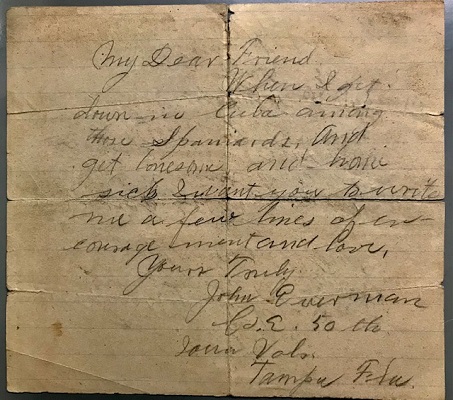 My Dear Friend
When I get
down in Cuba among
those Spaniards, And
get lonesome and home
sick I want you to write
me a few lines of en-
courage ment and love,
Yours Truly
John Everman
Co. E. 50th
Iowa Vols.
Tampa Fla.